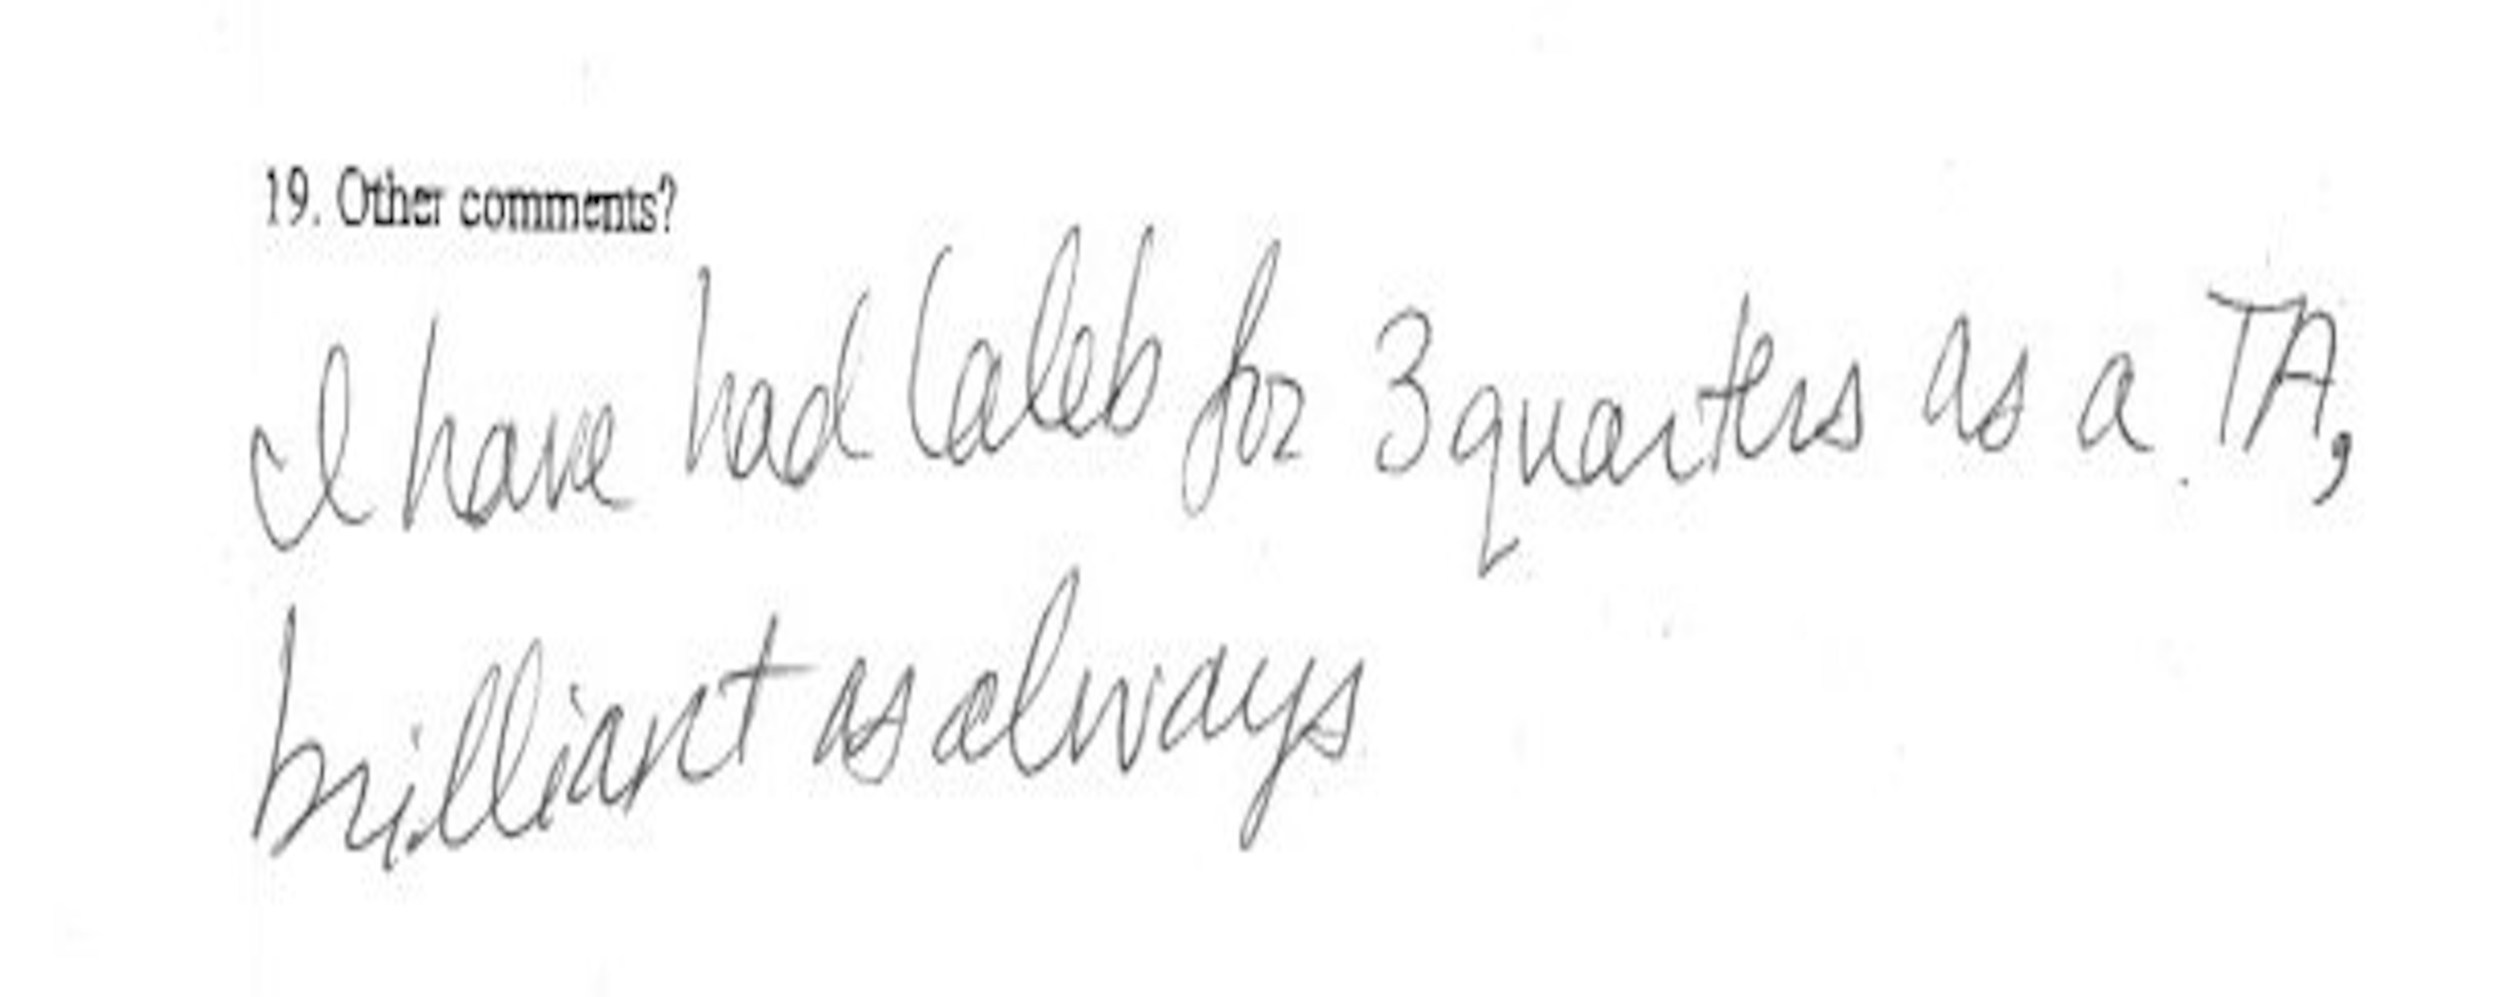 19. Other comments?
I have had Caleb for 3 quarters as a TA,
brilliant as always